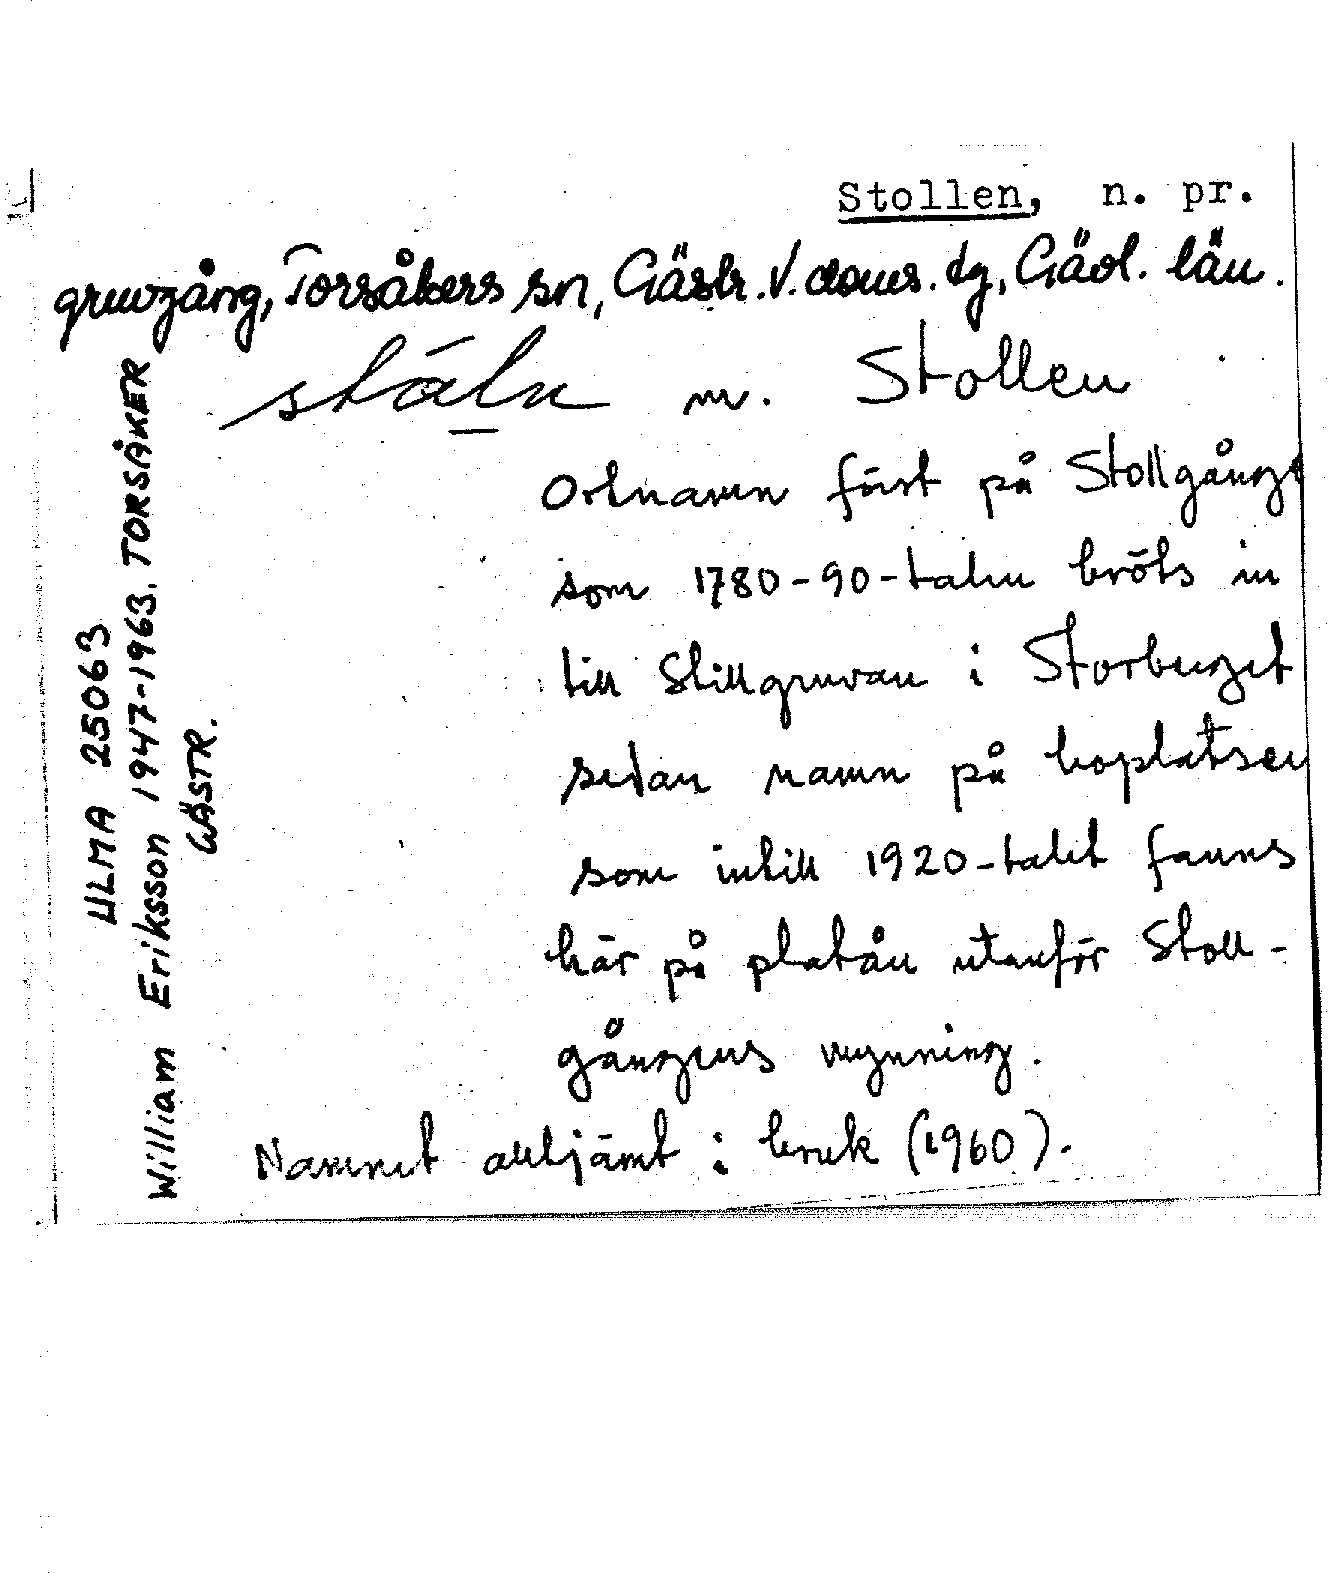 Stollen, n. pr.
gruvgång, Torsåkers sn, Gästr. V. doms. tg, Gävl. län.
m. Stollen
Ortnamn först på Stollgången
som 1780-90-talen bröts in
till Stillgruvan i Storberget
sedan namn på boplatsen
som intill 1920-talet fanns
här på platån utanför Stoll-
gångens mynning.
Namnet alltjämt i bruk (1960).
ULMA 25063
William Eriksson 1947-1963. TORSÅKER
GÄSTR.